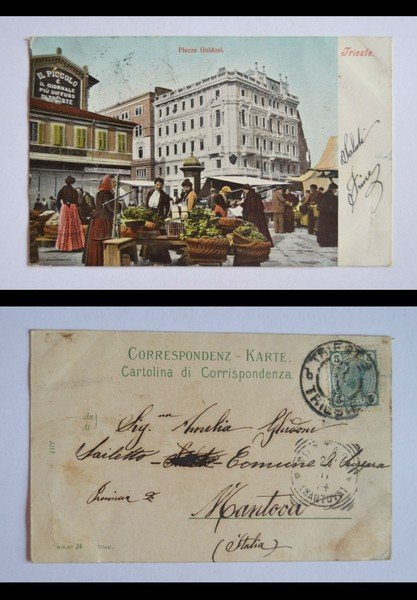 Piazza Goldoni.
Trieste.
IL PICCOLO
È
IL GIORNALE
PIÙ DIFFUSO
DI TRIESTE
Saluti
CORRESPONDENZ - KARTE.
Cartolina di Corrispondenza.
TRIEST
TRIESTE
5 5
Sig.na Amelia Ghidoni
Sailetto - Comune di Suzzara
Provincia di
Mantova
(Italia)
(MANTOVA)
Triest.